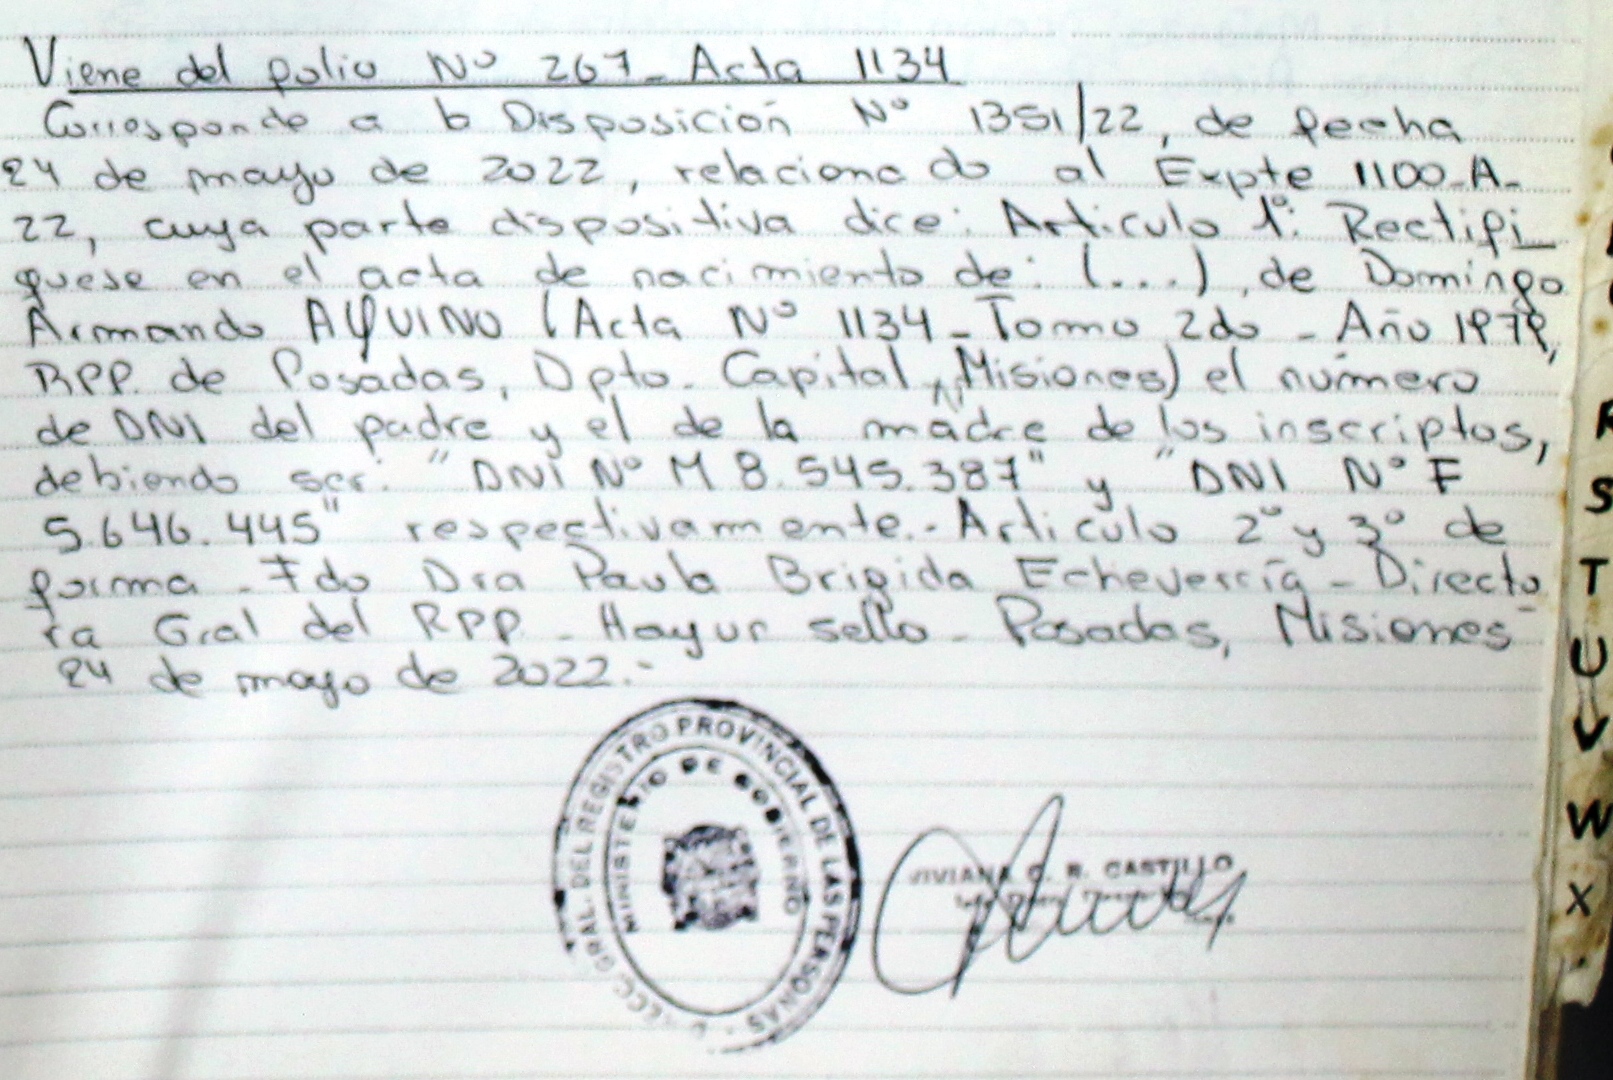 Viene del folio Nº 267_ Acta 1134
Corresponde a la Disposición Nº 1351/22, de fecha
24 de mayo de 2022, relacionado al Expte 1100-A-
22, cuya parte dispositiva dice: Artículo 1º: Rectifí_
quese en el acta de nacimiento de: (...), de Domingo
Armando AQUINO (Acta Nº 1134 - Tomo 2do - Año 1979,
RPP. de Posadas, Dpto. Capital, Misiones) el número
de DNI del padre y el de la madre de los inscriptos,
debiendo ser: "DNI Nº M 8.545.387" y "DNI Nº F
5.646.445" respectivamente.- Artículo 2º y 3º de
forma - Fdo Dra Paula Brigida Echeverría - Directo_
ra Gral del RPP - Hay un sello - Posadas, Misiones
24 de mayo de 2022.-
DIRECC. GRAL. DEL REGISTRO PROVINCIAL DE LAS PERSONAS
MINISTERIO DE GOBIERNO
VIVIANA C. R. CASTILLO
R
S
T
U
V
W
X